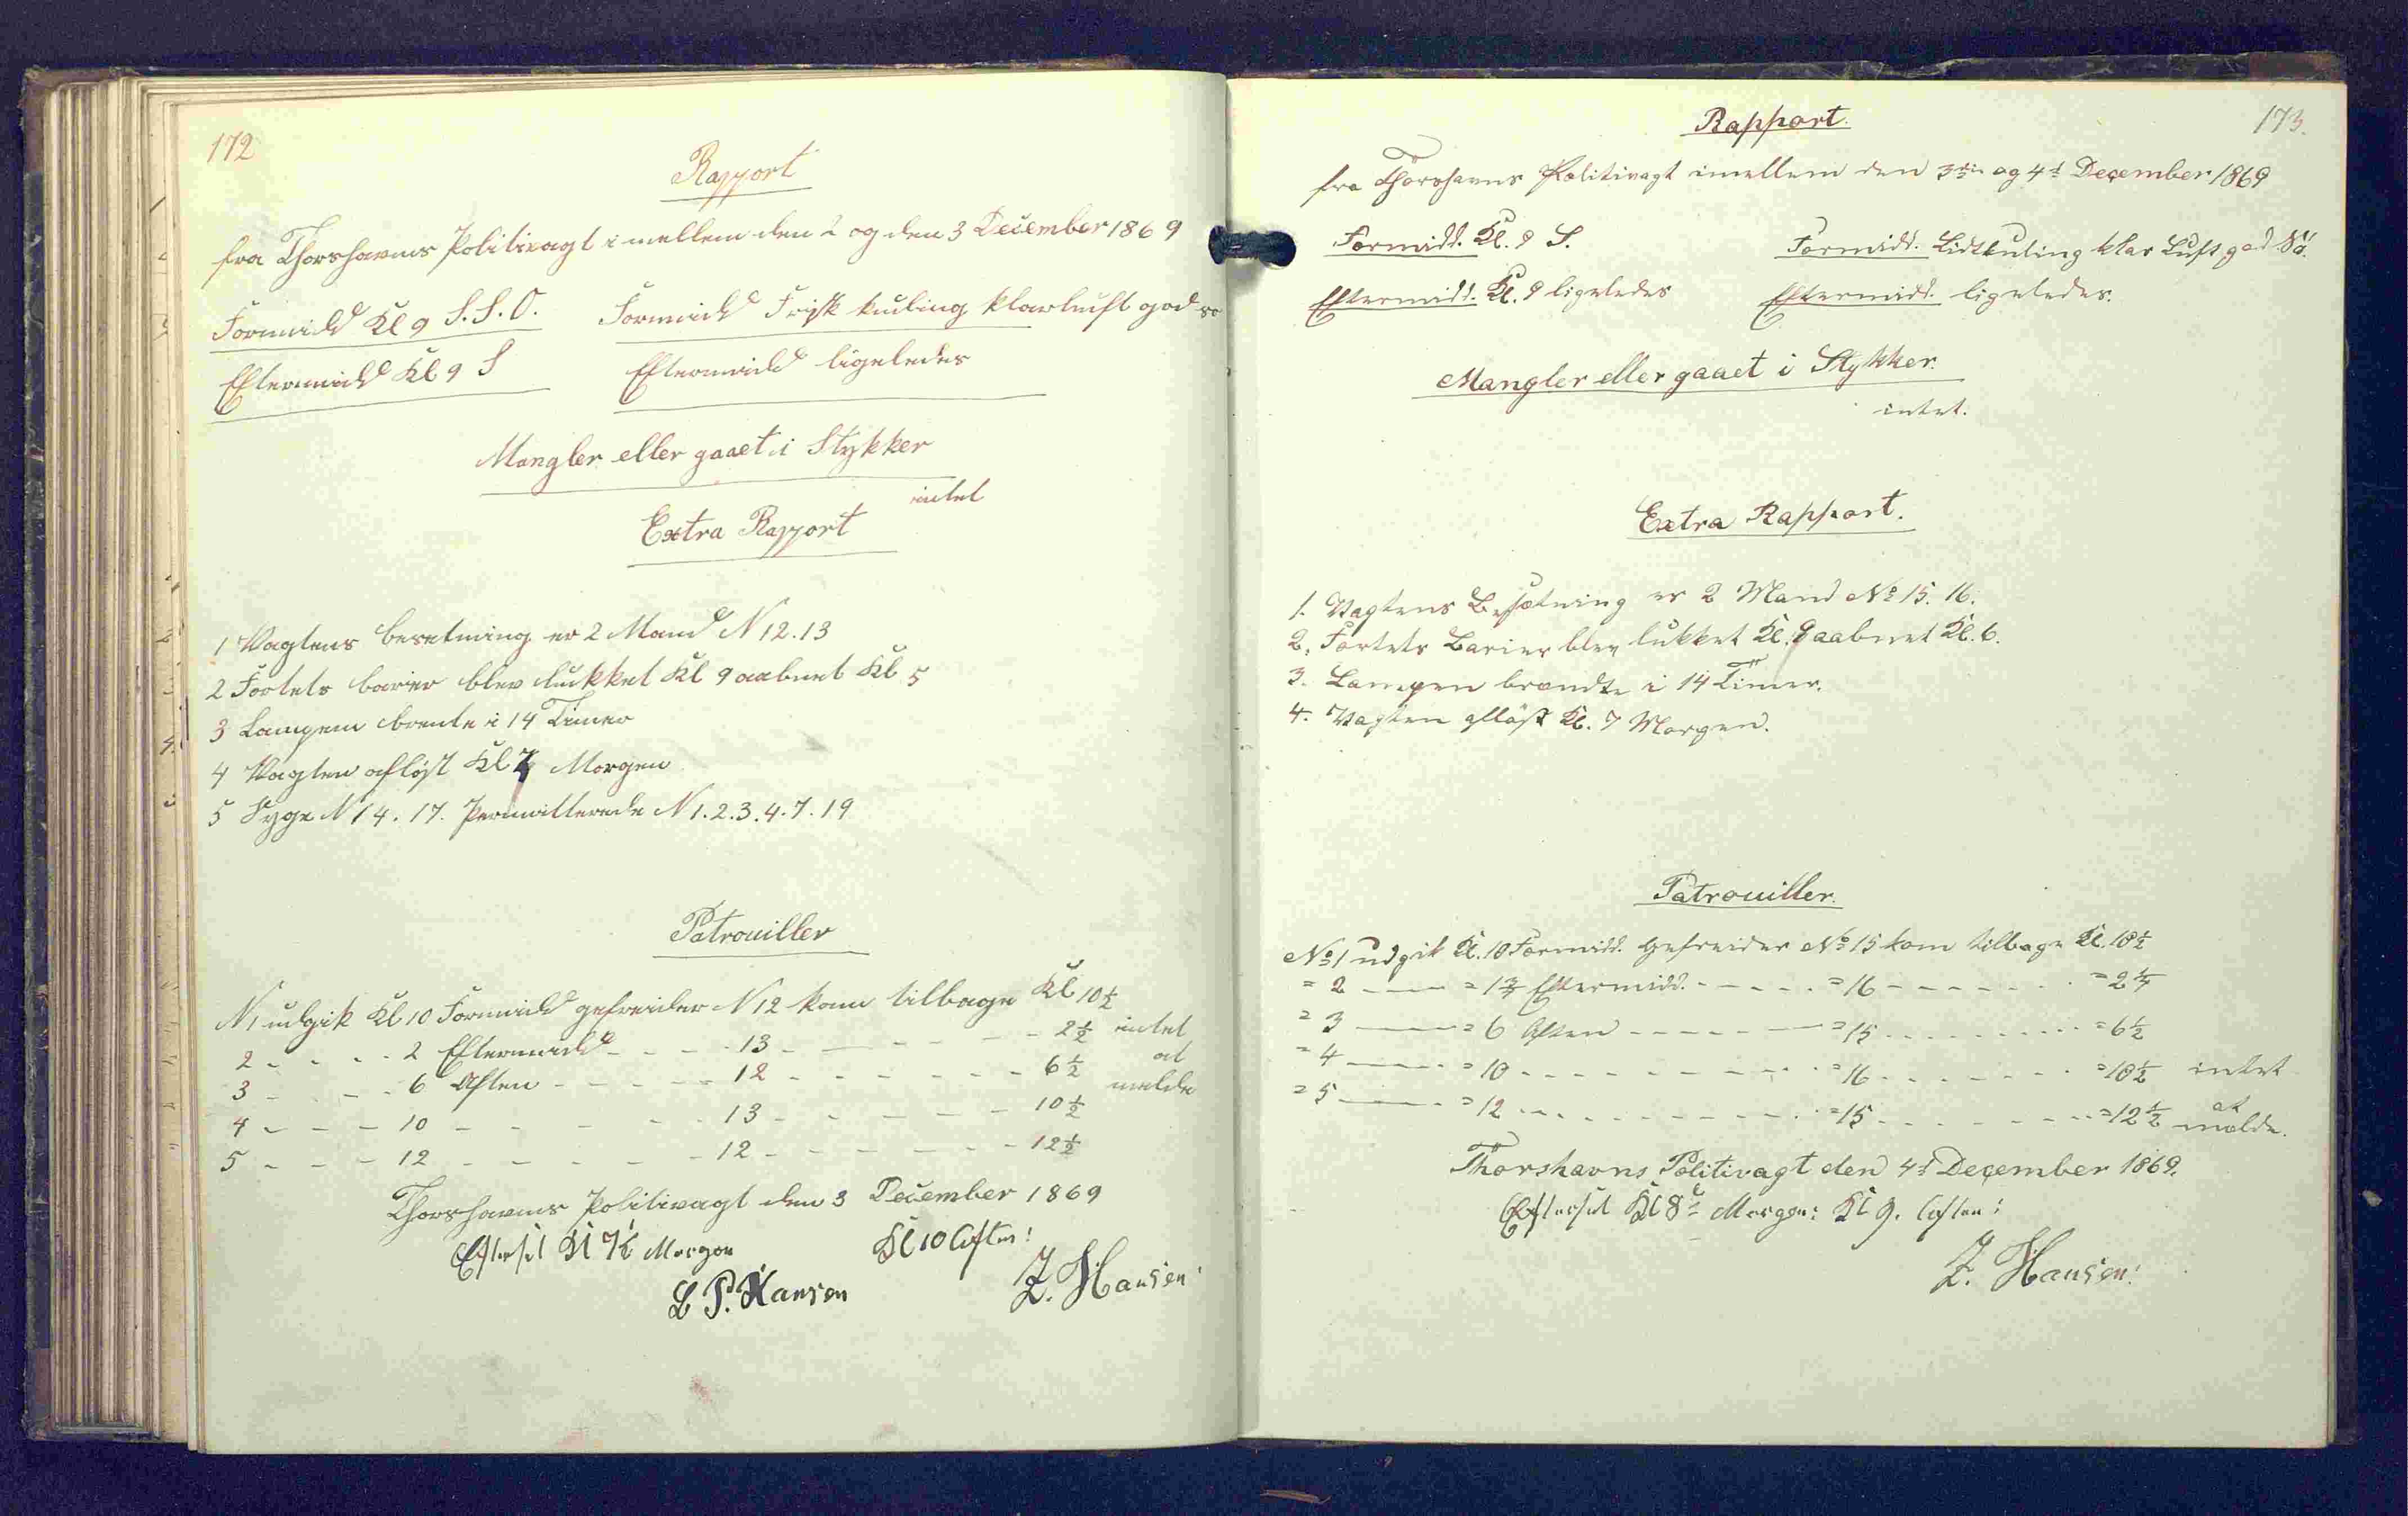 172
Rapport
fra Thorshavns Politivagt imellem den 2 og den 3 December 1869
Formidd Kl 9 S.S.O. Formidd Frisk kuling klarluft god sø
Eftermidd Kl 9 S Eftermidd ligeledes
Mangler eller gaaet i Stykker
intet
Extra Rapport
1 Vagtens besetning er 2 Mand N 12.13
2 Fortets barier blev lukket Kl 9 aabnet Kl 5
3 Lampen brente i 14 Timer
4 Vagten afløst Kl 7 Morgen
5 Syge N 14. 17. Permitterede N 1.2.3.4.7.19
Patrouiller
N 1 udgik Kl 10 Formidd gefreider N 12 kom tilbage Kl 10½
2 - - - - 2 Eftermidd - - - - 13 - - - - - - 2½ intet
3 - - - - 6 Aften - - - - - 12 - - - - - - - 6½ at
4 - - - 10 - - - - - 13 - - - - - 10½ melde
5 - - - 12 - - - - - 12 - - - - - - 12½
Thorshavns Politivagt den 3 December 1869
Eftersét Kl 7½ Morgen Kl 10 Aften!
L P. Hansen Z. Hansen
173.
Rapport.
fra Thorshavns Politivagt imellem den 3die og 4d December 1869
Formidd. Kl. 9 S. Formidd. Lidtkuling klar Luft god Sö.
Eftermidd. Kl. 9 ligeledes Eftermidd. ligeledes.
Mangler eller gaaet i Stykker.
intet.
Extra Rapport.
1. Vagtens Besætning er 2 Mand No 15. 16.
2. Fortets Barier blev lukket Kl. 9 aabnet Kl. 6.
3. Lampen brændte i 14 Timer.
4. Vagten aflöst Kl. 7 Morgen.
Patrouiller.
No 1 udgik Kl. 10 Formidd. Gefreider No 15 kom tilbage Kl. 10½
= 2 —— = Eftermidd. - - - - - = 16 - - - - - - - =
= 3 —— = 6 Aften - - - - - - = 15 - - - - - - - = 6½
= 4 —— = 10 - - - - - - - - - = 16 - - - - - - - = 10½ intet
= 5 —— = 12 - - - - - - - - - = 15 - - - - - - - = 12½ at melde.
Thorshavns Politivagt den 4d December 1869.
Eftersét Kl 8 Morgen: Kl 9. Aften!
Z. Hansen!